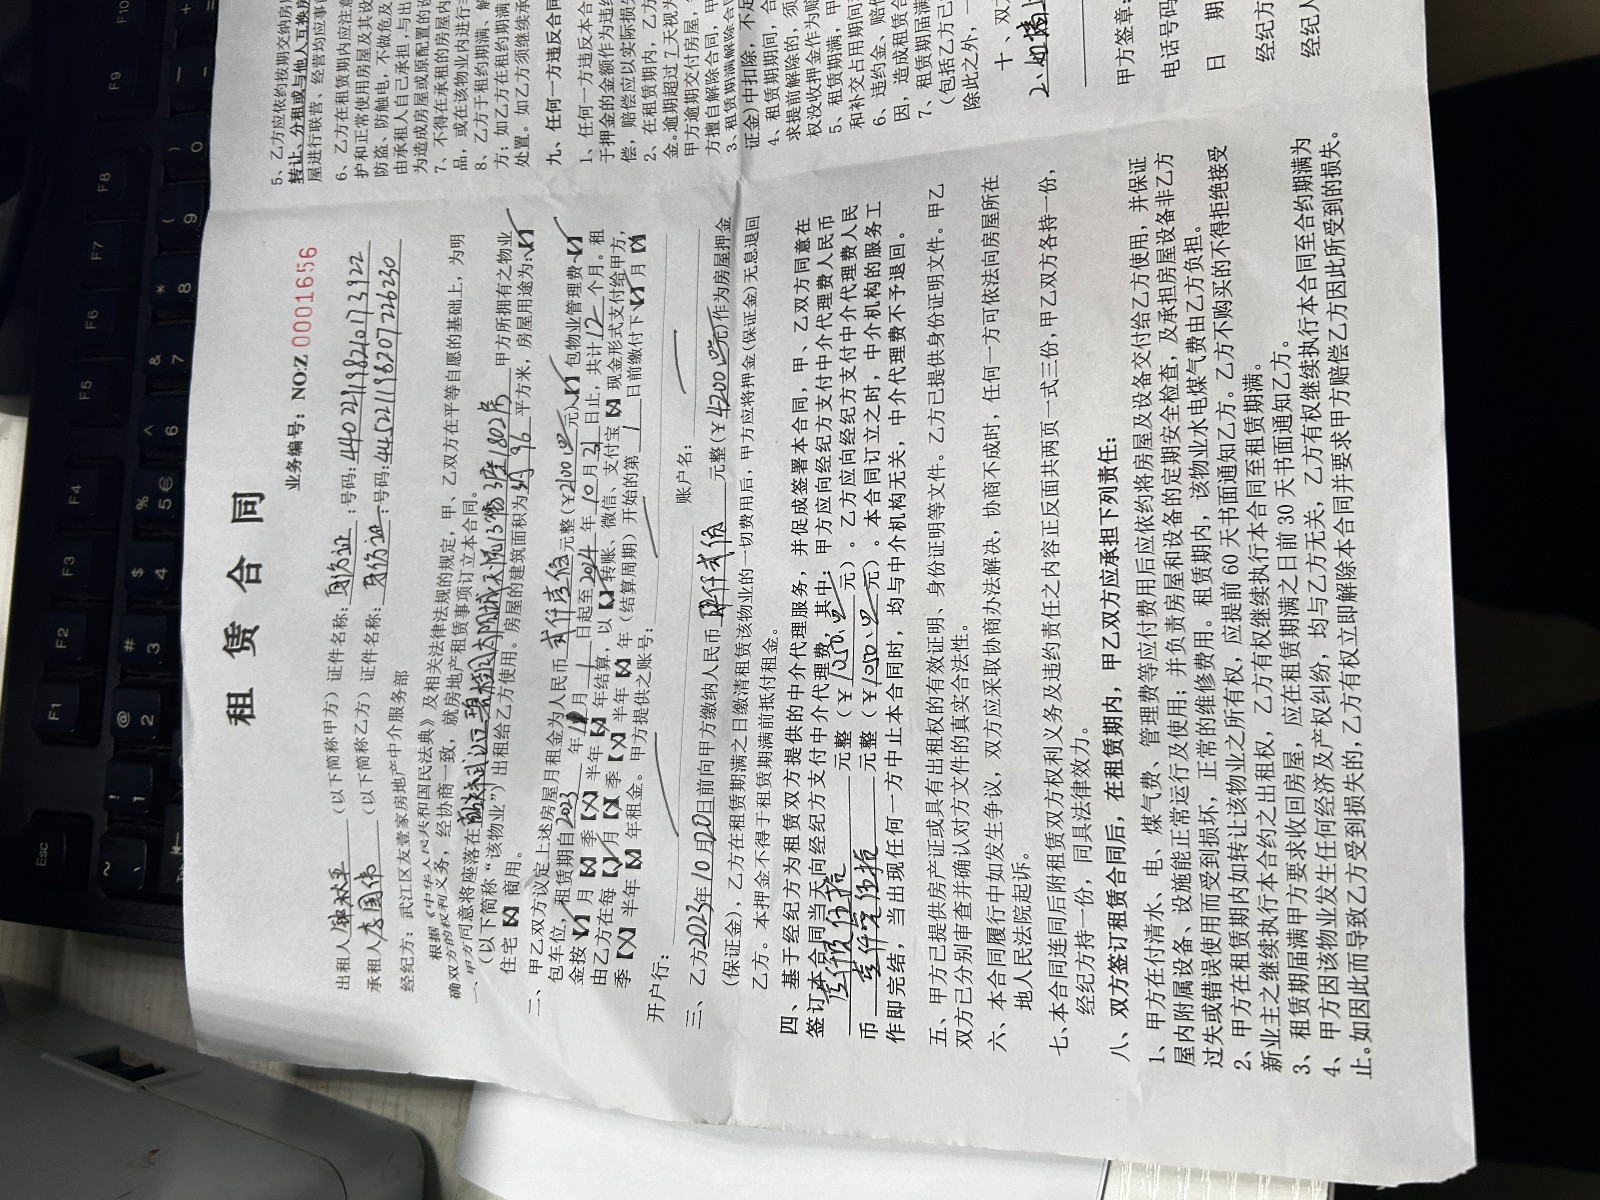 租赁合同
业务编号：NO:Z 0001656
出租人 （以下简称甲方）证件名称：身份证：号码：440221198210173922
承租人 李国伟 （以下简称乙方）证件名称：身份证：号码：445221198207226230
经纪方：武江区友壹家房地产中介服务部
根据《中华人民共和国民法典》及相关法律法规的规定，甲、乙双方在平等自愿的基础上，为明
确双方的权利义务，经协商一致，就房地产租赁事项订立本合同。
一、甲方同意将座落在 13幢 1802房 甲方所拥有之物业
（以下简称“该物业”）出租给乙方使用。房屋的建筑面积为 约96 平方米，房屋用途为：【✓】
住宅【×】商用。
二、甲乙双方议定上述房屋月租金为人民币 贰仟壹佰 元整（￥2100 元）【✓】包物业管理费【✓】
包车位，租赁期自 2023 年 月 1 日起至 2024 年 10 月 21 日止，共计 12 个月。租
金按【✓】月【×】季【×】半年【×】年结算，以【✓】转账、微信、支付宝【×】现金形式支付给甲方，
由乙方在每【✓】月【×】季【×】半年【×】年（结算周期）开始的第 1 日前缴付下【✓】月【×】
季【×】半年【×】年租金。甲方提供之账号：
开户行： 账户名：
三、乙方2023年10月20日前向甲方缴纳人民币 肆仟贰佰 元整（￥4200 元）作为房屋押金
（保证金），乙方在租赁期满之日缴清租赁该物业的一切费用后，甲方应将押金（保证金）无息退回
乙方。本押金不得于租赁期满前抵付租金。
四、基于经纪方为租赁双方提供的中介代理服务，并促成签署本合同，甲、乙双方同意在
签订本合同当天向经纪方支付中介代理费，其中，甲方应向经纪方支付中介代理费人民币
元整（￥1050 元）。乙方应向经纪方支付中介代理费人民
币 壹仟零伍拾 元整（￥1050 元）。本合同订立之时，中介机构的服务工
作即完结，当出现任何一方中止本合同时，均与中介机构无关，中介代理费不予退回。
五、甲方已提供房产证或具有出租权的有效证明、身份证明等文件。乙方已提供身份证明文件。甲乙
双方已分别审查并确认对方文件的真实合法性。
六、本合同履行中如发生争议，双方应采取协商办法解决，协商不成时，任何一方可依法向房屋所在
地人民法院起诉。
七、本合同连同后附租赁双方权利义务及违约责任之内容正反面共两页一式三份，甲乙双方各持一份，
经纪方持一份，同具法律效力。
八、双方签订租赁合同后，在租赁期内，甲乙双方应承担下列责任：
1、甲方在付清水、电、煤气费、管理费等应付费用后应依约将房屋及设备交付给乙方使用，并保证
屋内附属设备、设施能正常运行及使用；并负责房屋和设备的定期安全检查，及承担房屋设备非乙方
过失或错误使用而受到损坏，正常的维修费用。租赁期内，该物业水电煤气费由乙方负担。
2、甲方在租赁期内如转让该物业之所有权，应提前 60 天书面通知乙方。乙方不购买的不得拒绝接受
新业主之继续执行本合约之出租权，乙方有权继续执行本合同至租赁期满。
3、租赁期届满甲方要求收回房屋，应在租赁期满之日前 30 天书面通知乙方。
4、甲方因该物业发生任何经济及产权纠纷，均与乙方无关，乙方有权继续执行本合同至合约期满为
止。如因此而导致乙方受到损失的，乙方有权立即解除本合同并要求甲方赔偿乙方因此所受到的损失。
5、乙方应依约按期交纳房
转让、分租或与他人互换房
屋进行联营、经营均应事
6、乙方在租赁期内应注意
护和正常使用房屋及其设
防盗、防触电，不做危及
由承租人自己承担，与出
为造成房屋或原配置的设
7、不得在承租的房屋内
品，或在该物业内进行
8、乙方于租约期满、解
方；如乙方在租约期满
处置。如乙方须继续承
九、任何一方违反合同
1、任何一方违反本合
于押金的金额作为违约
偿，赔偿应以实际损
2、在租赁期内，乙方
金。逾期超过 7 天视为
甲方逾期交付房屋，
方擅自解除合同，甲
3、租赁期满解除合
证金）中扣除，不足
4、租赁期期间，合
求提前解除的，须
权没收押金作为赔
5、租赁期满，甲
和补交占用期间
6、违约金、赔偿
因，造成租赁合
7、租赁期届满
（包括乙方已
除此之外，
十、双
2、
甲方签章：
电话号码
日 期
经纪方
经纪人
Esc
F1
F2
F3
F4
F5
F6
F7
F8
F9
F10
~
! 1
@ 2
# 3
$ 4
% 5 €
^ 6
& 7
* 8
( 9
) 0
_ -
+ =